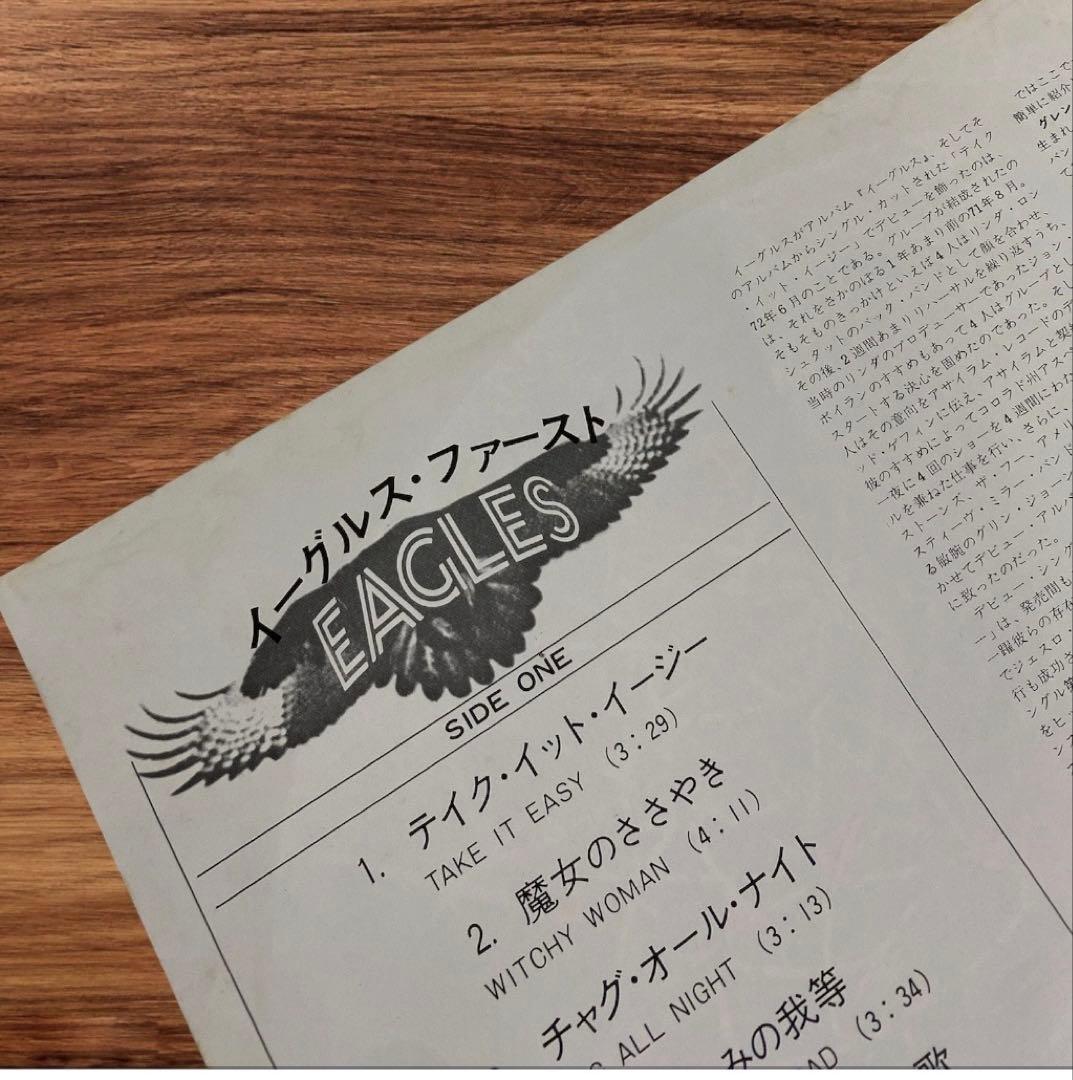 イーグルス・ファースト
EAGLES
SIDE ONE
1. テイク・イット・イージー
TAKE IT EASY (3:29)
2. 魔女のささやき
WITCHY WOMAN (4:11)
チャグ・オール・ナイト
ALL NIGHT (3:13)
みの我等
(3:34)
歌
イーグルスがアルバム『イーグルス』、そしてそ
のアルバムからシングル・カットされた「テイク
・イット・イージー」でデビューを飾ったのは、
72年6月のことである。グループが結成されたの
は、それをさかのぼる1年あまり前の71年8月。
そもそものきっかけといえば4人はリンダ・ロン
シュタットのバック・バンドとして顔を合わせ、
その後、2週間あまりリハーサルを繰り返すうち、
当時のリンダのプロデューサーであったジョン・
ボイランのすすめもあって4人はグループとし
スタートする決心を固めたのであった。そし
人はその意向をアサイラム・レコードのデ
ッド・ゲフィンに伝え、アサイラムと契約
彼のすすめによってコロラド州アスペ
一夜に4回のショーを4週間にわた
ルを兼ねた仕事を行い、さらに、
ストーンズ、ザ・フー、アメリ
スティーヴ・ミラー・バンド
る敏腕のグリン・ジョーン
かせてデビュー・アルバ
に致ったのだった。
デビュー・シング
ー」は、発売間も
一躍彼らの存在
でジェスロ・
行も成功さ
ングル第
をヒッ
ン
ではここで
簡単に紹介
グレン
生まれ
バン